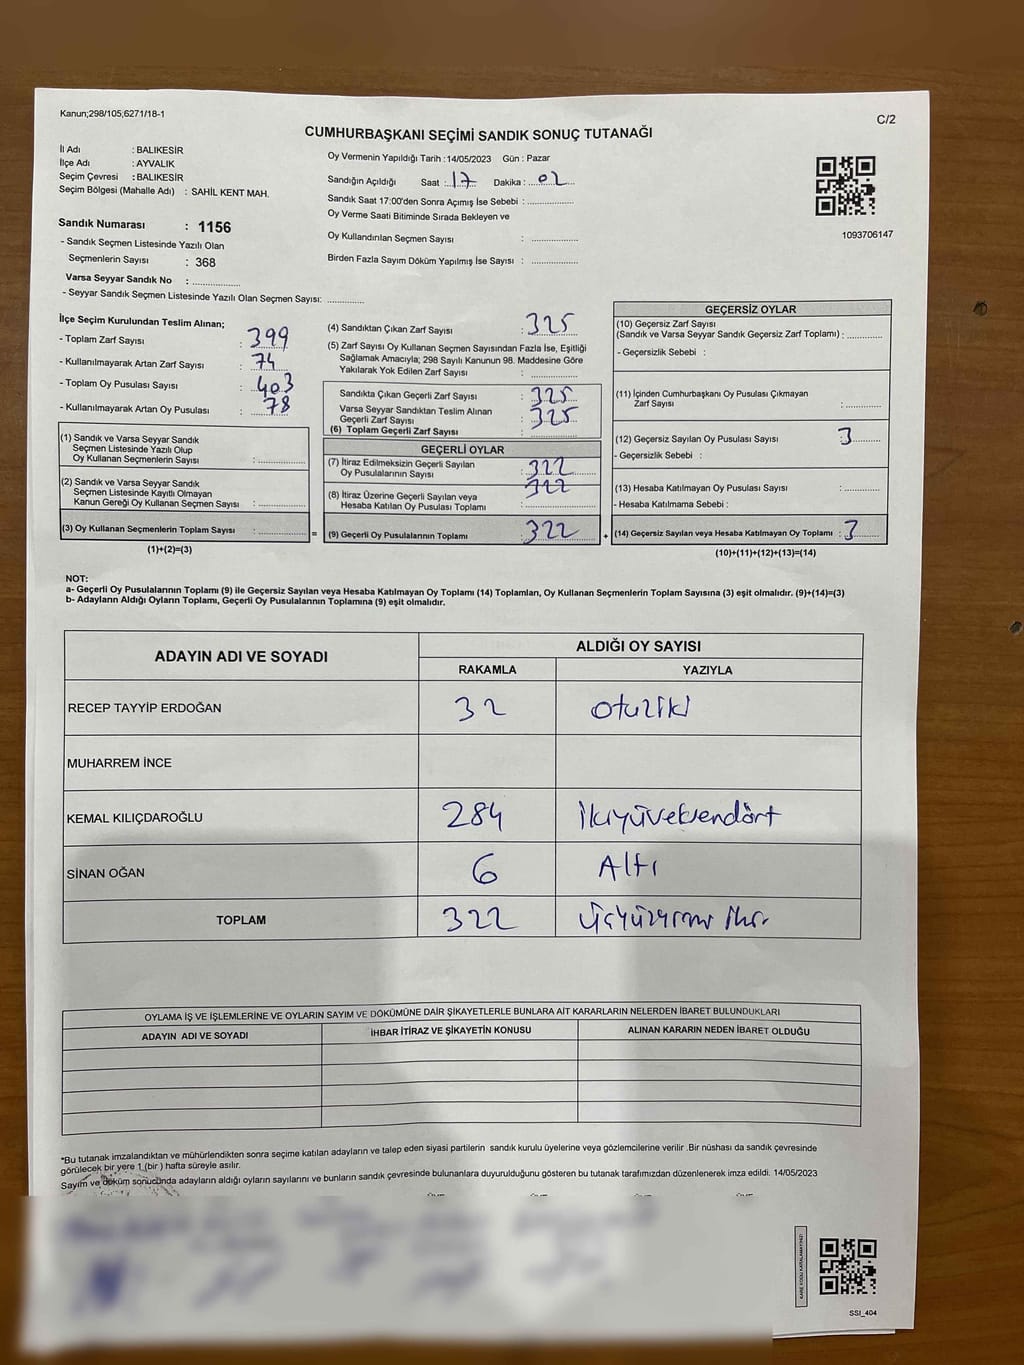 Kanun;298/105;6271/18-1
C/2
CUMHURBAŞKANI SEÇİMİ SANDIK SONUÇ TUTANAĞI
İl Adı : BALIKESİR
İlçe Adı : AYVALIK
Seçim Çevresi : BALIKESİR
Seçim Bölgesi (Mahalle Adı) : SAHİL KENT MAH.
Sandık Numarası : 1156
- Sandık Seçmen Listesinde Yazılı Olan
Seçmenlerin Sayısı : 368
Varsa Seyyar Sandık No : ..................
- Seyyar Sandık Seçmen Listesinde Yazılı Olan Seçmen Sayısı: .............
Oy Vermenin Yapıldığı Tarih : 14/05/2023 Gün : Pazar
Sandığın Açıldığı Saat : 17 Dakika : 02
Sandık Saat 17:00'den Sonra Açımış İse Sebebi : ................
Oy Verme Saati Bitiminde Sırada Bekleyen ve
Oy Kullandırılan Seçmen Sayısı : ................
Birden Fazla Sayım Döküm Yapılmış İse Sayısı : ................
1093706147
İlçe Seçim Kurulundan Teslim Alınan;
- Toplam Zarf Sayısı : 399
- Kullanılmayarak Artan Zarf Sayısı : 74
- Toplam Oy Pusulası Sayısı : 403
- Kullanılmayarak Artan Oy Pusulası : 78
(1) Sandık ve Varsa Seyyar Sandık
Seçmen Listesinde Yazılı Olup
Oy Kullanan Seçmenlerin Sayısı : ................
(2) Sandık ve Varsa Seyyar Sandık
Seçmen Listesinde Kayıtlı Olmayan
Kanun Gereği Oy Kullanan Seçmen Sayısı : ................
(3) Oy Kullanan Seçmenlerin Toplam Sayısı : ................ =
(1)+(2)=(3)
(4) Sandıktan Çıkan Zarf Sayısı : 325
(5) Zarf Sayısı Oy Kullanan Seçmen Sayısından Fazla İse, Eşitliği
Sağlamak Amacıyla; 298 Sayılı Kanunun 98. Maddesine Göre
Yakılarak Yok Edilen Zarf Sayısı : ................
Sandıkta Çıkan Geçerli Zarf Sayısı : 325
Varsa Seyyar Sandıktan Teslim Alınan
Geçerli Zarf Sayısı : 325
(6) Toplam Geçerli Zarf Sayısı : ................
GEÇERLİ OYLAR
(7) İtiraz Edilmeksizin Geçerli Sayılan
Oy Pusulalarının Sayısı : 322
(8) İtiraz Üzerine Geçerli Sayılan veya 322
Hesaba Katılan Oy Pusulası Toplamı : ................
(9) Geçerli Oy Pusulalarının Toplamı : 322 +
GEÇERSİZ OYLAR
(10) Geçersiz Zarf Sayısı
(Sandık ve Varsa Seyyar Sandık Geçersiz Zarf Toplamı) : ............
- Geçersizlik Sebebi :
(11) İçinden Cumhurbaşkanı Oy Pusulası Çıkmayan
Zarf Sayısı : ............
(12) Geçersiz Sayılan Oy Pusulası Sayısı : 3
- Geçersizlik Sebebi :
(13) Hesaba Katılmayan Oy Pusulası Sayısı : ............
- Hesaba Katılmama Sebebi :
(14) Geçersiz Sayılan veya Hesaba Katılmayan Oy Toplamı : 3
(10)+(11)+(12)+(13)=(14)
NOT:
a- Geçerli Oy Pusulalarının Toplamı (9) ile Geçersiz Sayılan veya Hesaba Katılmayan Oy Toplamı (14) Toplamları, Oy Kullanan Seçmenlerin Toplam Sayısına (3) eşit olmalıdır. (9)+(14)=(3)
b- Adayların Aldığı Oyların Toplamı, Geçerli Oy Pusulalarının Toplamına (9) eşit olmalıdır.
ADAYIN ADI VE SOYADI ALDIĞI OY SAYISI
RAKAMLA YAZIYLA
RECEP TAYYİP ERDOĞAN 32 otuziki
MUHARREM İNCE
KEMAL KILIÇDAROĞLU 284 ikiyüveksendört
SİNAN OĞAN 6 Altı
TOPLAM 322 üçyüzyirmi iki.
OYLAMA İŞ VE İŞLEMLERİNE VE OYLARIN SAYIM VE DÖKÜMÜNE DAİR ŞİKAYETLERLE BUNLARA AİT KARARLARIN NELERDEN İBARET BULUNDUKLARI
ADAYIN ADI VE SOYADI İHBAR İTİRAZ VE ŞİKAYETİN KONUSU ALINAN KARARIN NEDEN İBARET OLDUĞU
*Bu tutanak imzalandıktan ve mühürlendikten sonra seçime katılan adayların ve talep eden siyasi partilerin sandık kurulu üyelerine veya gözlemcilerine verilir .Bir nüshası da sandık çevresinde
görülecek bir yere 1 (bir ) hafta süreyle asılır.
Sayım ve döküm sonucunda adayların aldığı oyların sayılarını ve bunların sandık çevresinde bulunanlara duyurulduğunu gösteren bu tutanak tarafımızdan düzenlenerek imza edildi. 14/05/2023
KARE KODU KARALAMAYINIZ!
SSI_404